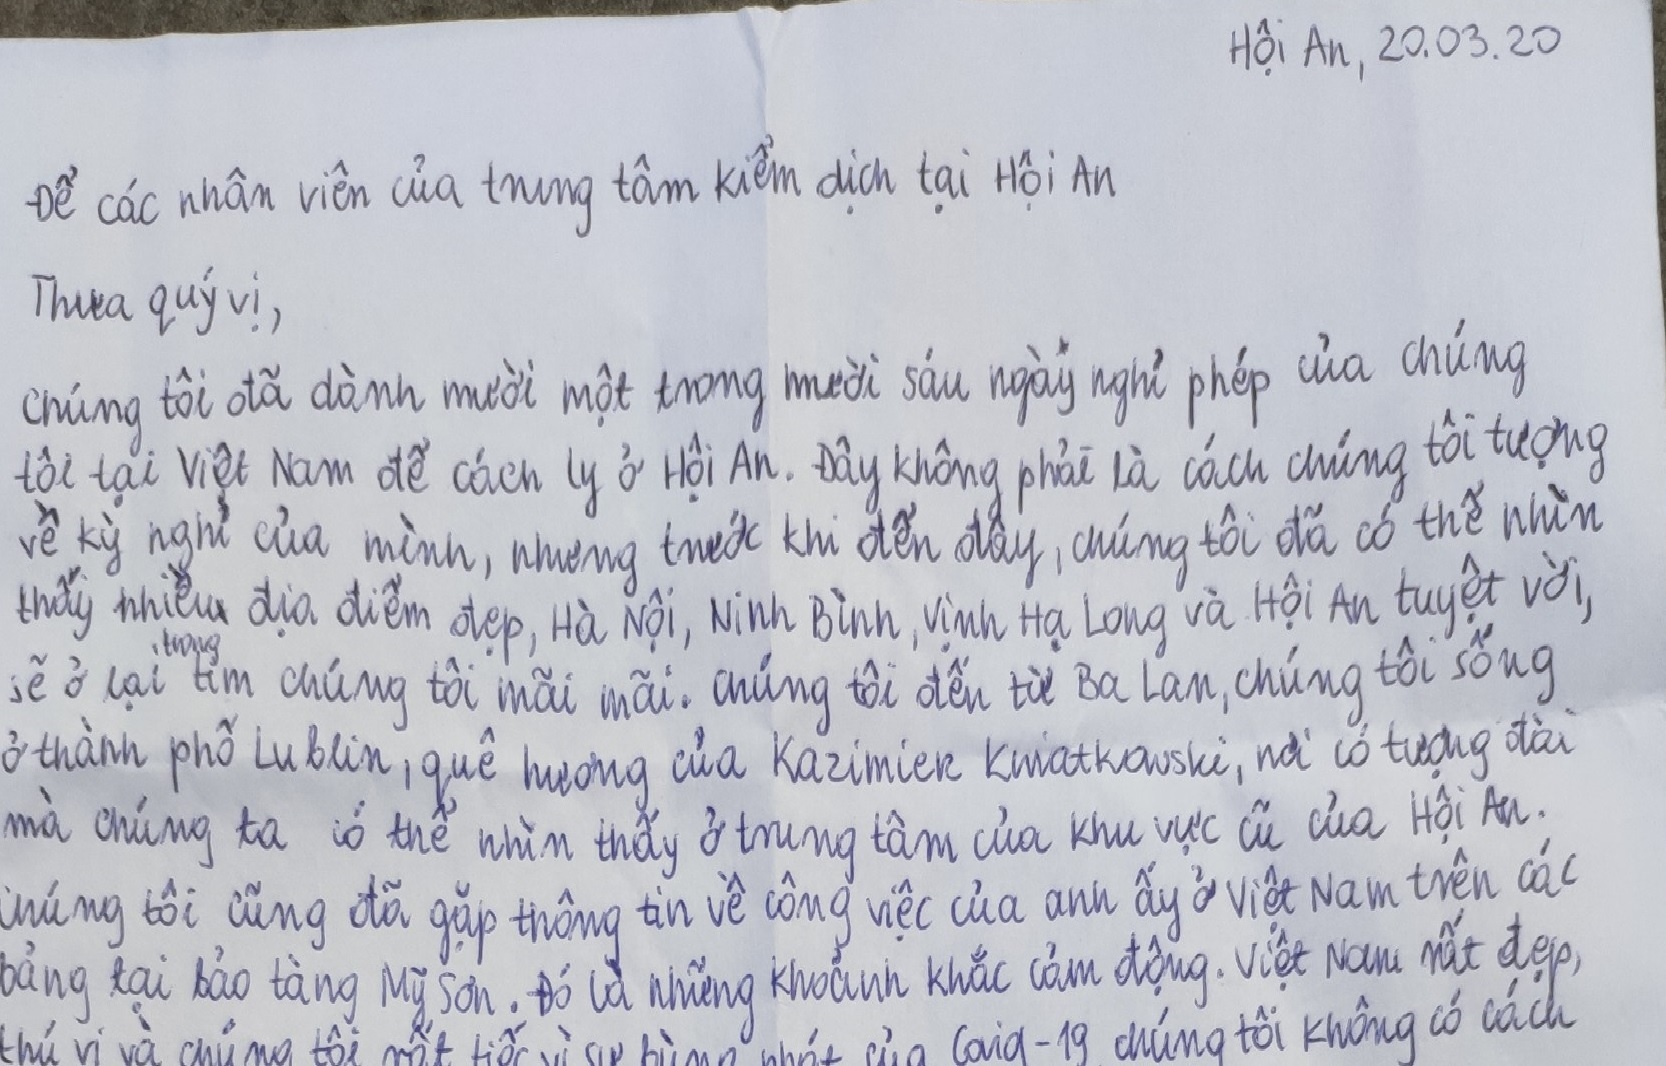 Hội An, 20.03.20
Để các nhân viên của trung tâm kiểm dịch tại Hội An
Thưa quý vị,
Chúng tôi đã dành mười một trong mười sáu ngày nghỉ phép của chúng
tôi tại Việt Nam để cách ly ở Hội An. Đây không phải là cách chúng tôi tượng
về kỳ nghỉ của mình, nhưng trước khi đến đây, chúng tôi đã có thể nhìn
thấy nhiều địa điểm đẹp, Hà Nội, Ninh Bình, Vịnh Hạ Long và Hội An tuyệt vời,
sẽ ở lại trong tim chúng tôi mãi mãi. Chúng tôi đến từ Ba Lan, chúng tôi sống
ở thành phố Lublin, quê hương của Kazimierz Kwiatkowski, nơi có tượng đài
mà chúng ta có thể nhìn thấy ở trung tâm của khu vực cũ của Hội An.
Chúng tôi cũng đã gặp thông tin về công việc của anh ấy ở Việt Nam trên các
bảng tại bảo tàng Mỹ Sơn. Đó là những khoảnh khắc cảm động. Việt Nam rất đẹp,
thú vị và chúng tôi rất tiếc vì sự bùng phát của Covid-19 chúng tôi không có cách